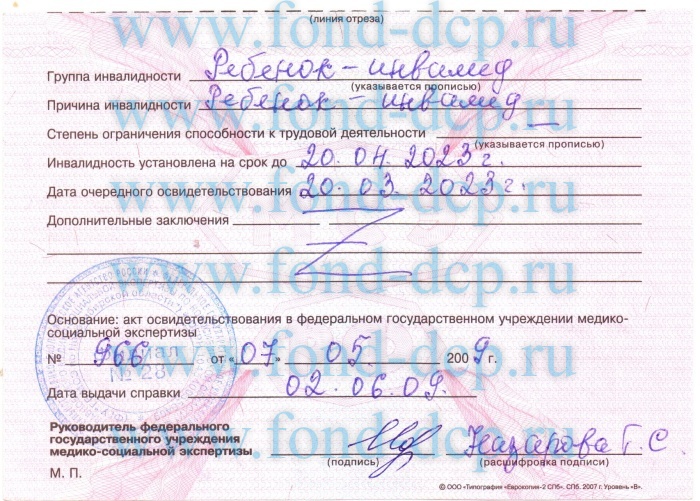 www.fond-dcp.ru
(линия отреза)
Группа инвалидности Ребенок - инвалид
(указывается прописью)
www.fond-dcp.ru
Причина инвалидности Ребенок - инвалид
Степень ограничения способности к трудовой деятельности —
(указывается прописью)
Инвалидность установлена на срок до 20.04.2023 г.
Дата очередного освидетельствования 20.03.2023 г.
www.fond-dcp.ru
Дополнительные заключения
www.fond-dcp.ru
Основание: акт освидетельствования в федеральном государственном учреждении медико-
социальной экспертизы
www.fond-dcp.ru
№ 966 от «07» 05. 2009 г.
филиал
№ 28
Дата выдачи справки 02.06.09.
www.fond-dcp.ru
Руководитель федерального
государственного учреждения
медико-социальной экспертизы Назарова Г.С.
(подпись) (расшифровка подписи)
М. П.
© ООО «Типография «Еврокопия-2 СПб». СПб. 2007 г. Уровень «В».